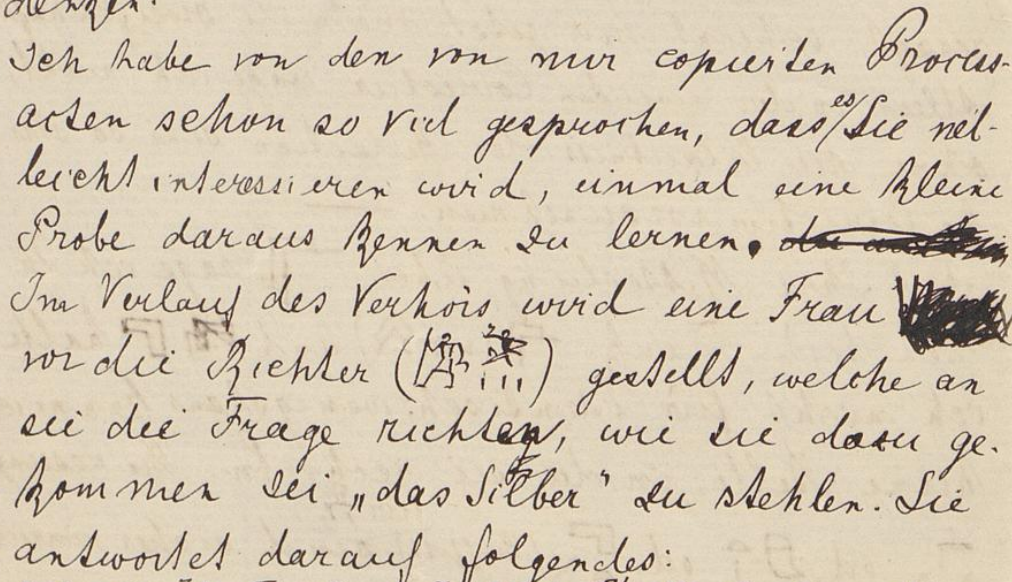 denken.
Ich habe von den von mir copierten Process-
acten schon so viel gesprochen, dass es Sie viel-
leicht interessieren wird, einmal eine kleine
Probe daraus kennen zu lernen.
Im Verlauf des Verhörs wird eine Frau
vor die Richter ( ) gestellt, welche an
sie die Frage richten, wie sie dazu ge-
kommen sei „das Silber" zu stehlen. Sie
antwortet darauf folgendes: